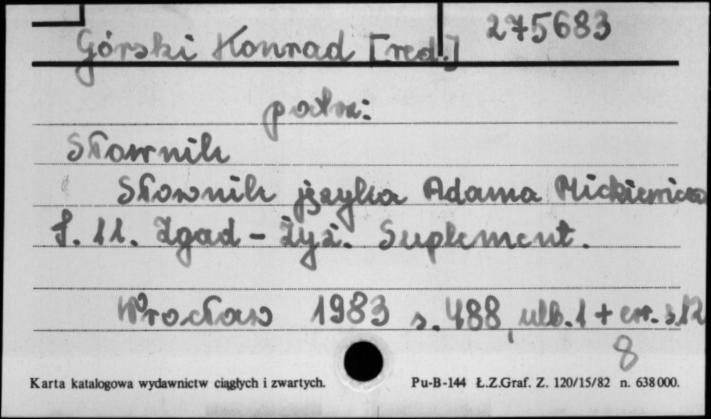 275683
Górski Konrad [red.]
patrz:
Słownik
Słownik języka Adama Mickiewicza
T. 11. Zgad - Żyż. Suplement.
Wrocław 1983 s. 488, ulb. 1 + err. s. 12
8
Karta katalogowa wydawnictw ciągłych i zwartych. Pu-B-144 Ł.Z.Graf. Z. 120/15/82 n. 638000.